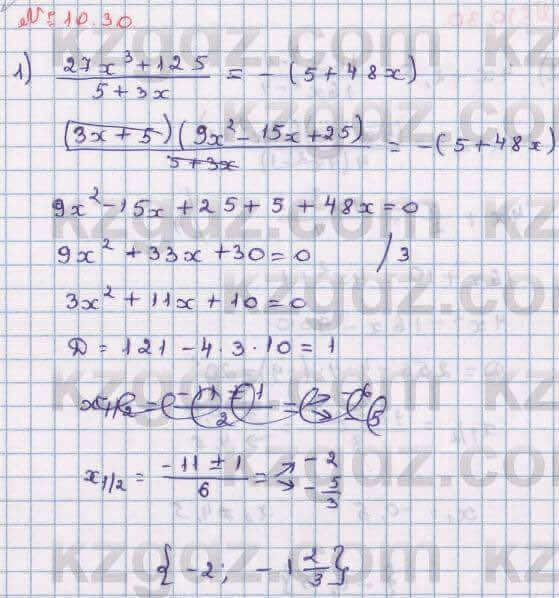 № 10.30
1) (27x³ + 125) / (5 + 3x) = - (5 + 48x)
(3x + 5)(9x² - 15x + 25) / (5 + 3x) = - (5 + 48x)
9x² - 15x + 25 + 5 + 48x = 0
9x² + 33x + 30 = 0 / 3
3x² + 11x + 10 = 0
D = 121 - 4 · 3 · 10 = 1
x₁/₂ = (-11 ± 1) / 6 = ↗ - 2 ↘ - 5/3
{ -2; - 1 2/3 }
kzgdz.com